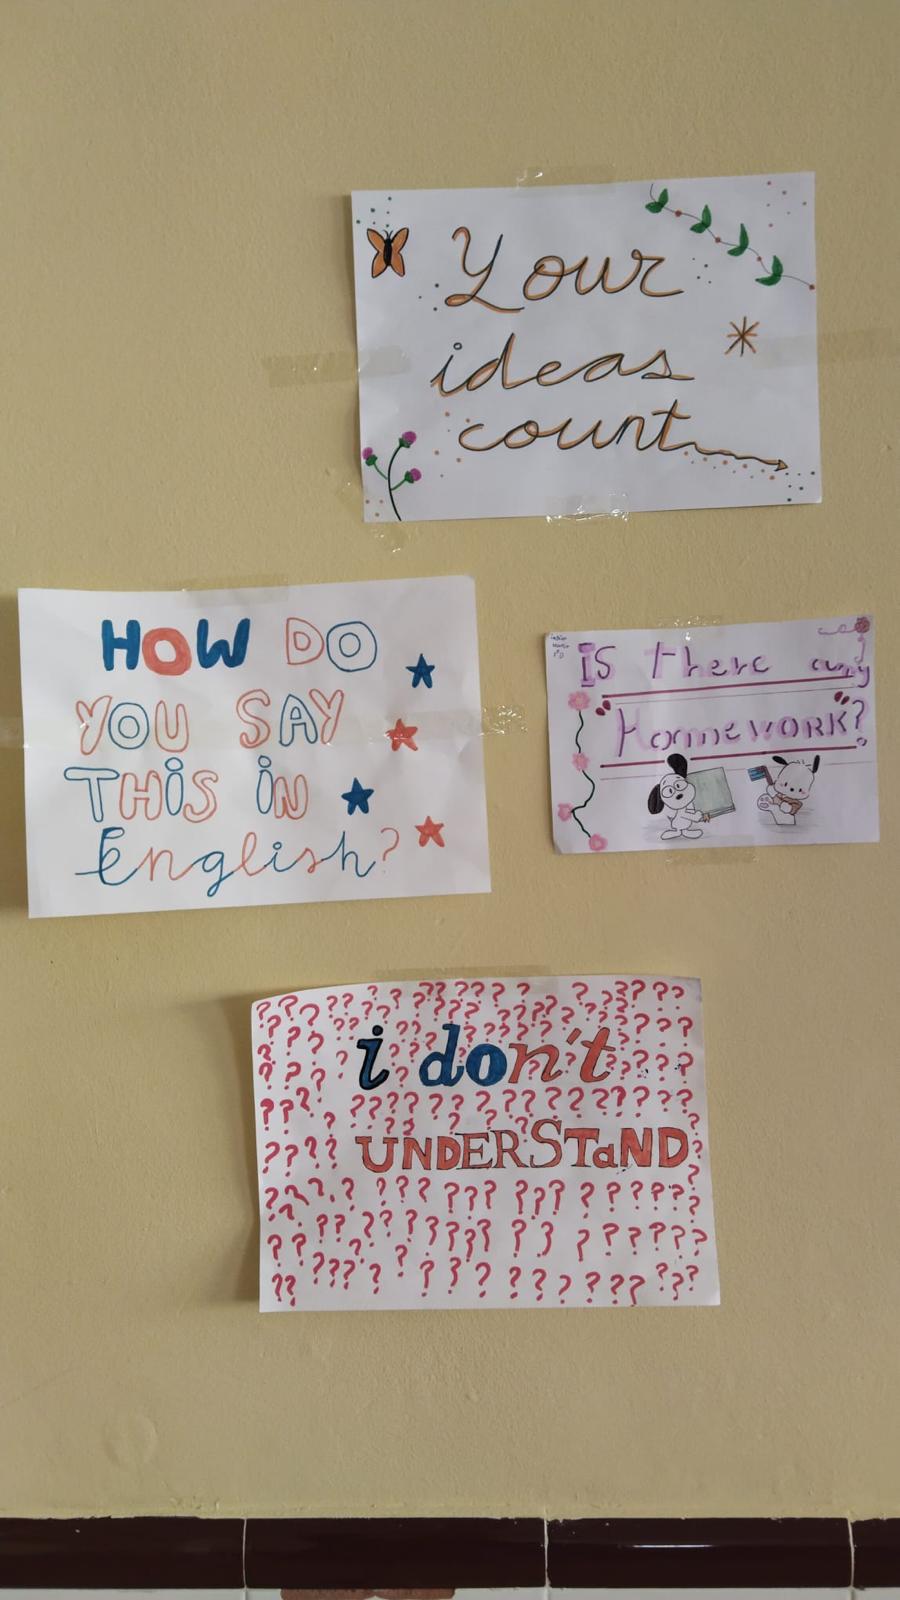 Your
ideas
count
HOW DO
YOU SAY
THiS iN
English?
iS there any
Homework?
i don't
UNDERSTaND